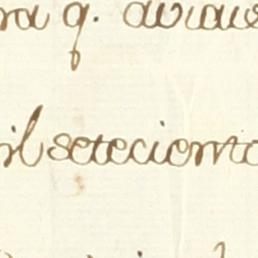 ra q. aviaus
il seteciento